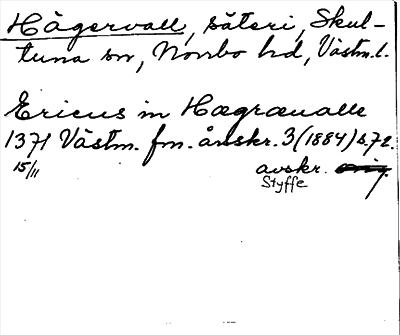 Hägervall, säteri, Skul-
tuna sn, Norrbo hd, Västm.l.
Ericus in Hægræualle
1371 Västm. fm. årsskr. 3 (1884) s. 72.
15/11 avskr.
Styffe